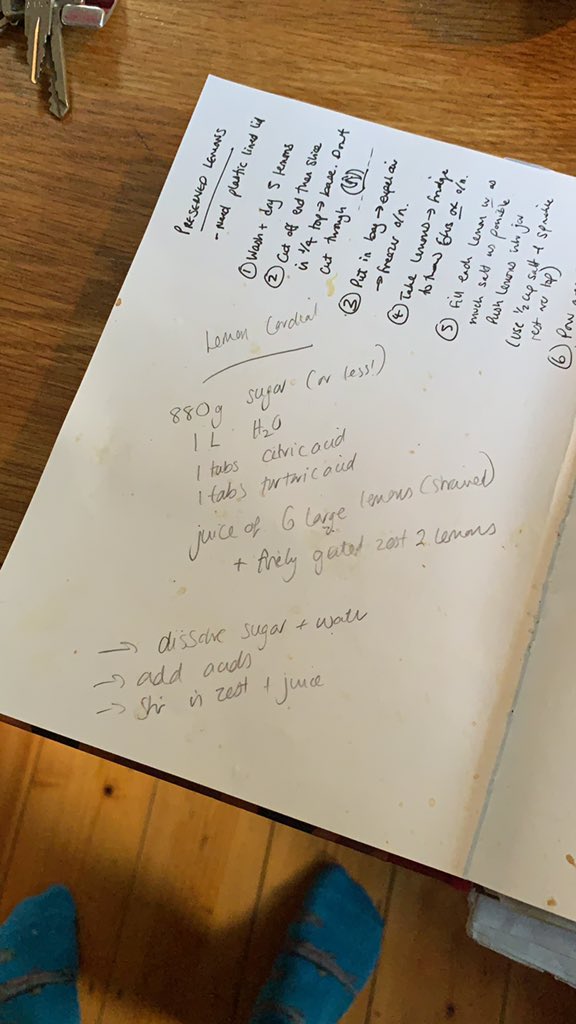 PRESERVED LEMONS
- need plastic lined lid
① Wash + dry 5 lemons
② Cut off end then slice
in 1/4 top → base. Don't
cut through
③ Put in bag → expel air
→ freezer o/n.
④ Take lemons → fridge
to thaw 8hrs or o/n.
⑤ Fill each lemon w as
much salt as possible
Push lemons into jar
(use 1/2 cup salt + sprinkle
rest over top)
⑥ Pour
Lemon Cordial
880g sugar (or less!)
1 L H2O
1 tabs citric acid
1 tabs tartaric acid
juice of 6 large lemons (strained)
+ finely grated zest 2 lemons
→ dissolve sugar + water
→ add acids
→ stir in zest + juice